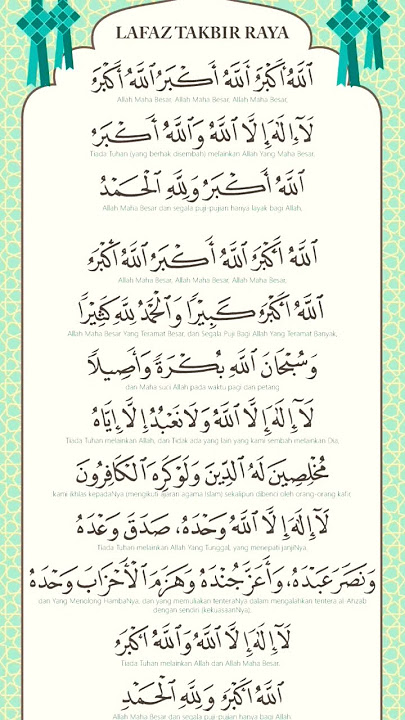 LAFAZ TAKBIR RAYA
اَللّٰهُ أَكْبَرُ اَللّٰهُ أَكْبَرُ اَللّٰهُ أَكْبَرُ
Allah Maha Besar, Allah Maha Besar, Allah Maha Besar,
لَآ إِلٰهَ إِلَّا اللَّهُ وَاللَّهُ أَكْبَرُ
Tiada Tuhan (yang berhak disembah) melainkan Allah Yang Maha Besar,
اَللَّهُ أَكْبَرُ وَلِلَّهِ الْحَمْدُ
Allah Maha Besar dan segala puji-pujian hanya layak bagi Allah,
اَللَّهُ أَكْبَرُ اَللَّهُ أَكْبَرُ اَللَّهُ أَكْبَرُ
Allah Maha Besar, Allah Maha Besar, Allah Maha Besar,
اَللَّهُ أَكْبَرُ كَبِيْرًا وَالْحَمْدُ لِلَّهِ كَثِيْرًا
Allah Maha Besar Yang Teramat Besar, dan Segala Puji Bagi Allah Yang Teramat Banyak,
وَسُبْحَانَ اللَّهِ بُكْرَةً وَأَصِيلًا
dan Maha suci Allah pada waktu pagi dan petang
لَآ إِلٰهَ إِلَّا اللَّهُ وَلَا نَعْبُدُ إِلَّا إِيَّاهُ
Tiada Tuhan melainkan Allah, dan Tidak ada yang lain yang kami sembah melainkan Dia,
مُخْلِصِينَ لَهُ الدِّينَ وَلَوْ كَرِهَ الْكَافِرُونَ
kami ikhlas kepadaNya (mengikuti ajaran agama Islam) sekalipun dibenci oleh orang-orang kafir,
لَآ إِلٰهَ إِلَّا اللَّهُ وَحْدَهُ، صَدَقَ وَعْدَهُ
Tiada Tuhan melainkan Allah Yang Tunggal, yang menepati janjiNya,
وَنَصَرَ عَبْدَهُ، وَأَعَزَّ جُنْدَهُ وَهَزَمَ الْأَحْزَابَ وَحْدَهُ
dan Yang Menolong HambaNya, dan yang memuliakan tenteraNya dalam mengalahkan tentera al-Ahzab
dengan sendiri (kekuasaanNya).
لَآ إِلٰهَ إِلَّا اللَّهُ وَاللَّهُ أَكْبَرُ
Tiada Tuhan melainkan Allah dan Allah Maha Besar,
اَللَّهُ أَكْبَرُ وَلِلَّهِ الْحَمْدِ
Allah Maha Besar dan segala puji-pujian hanya bagi Allah.